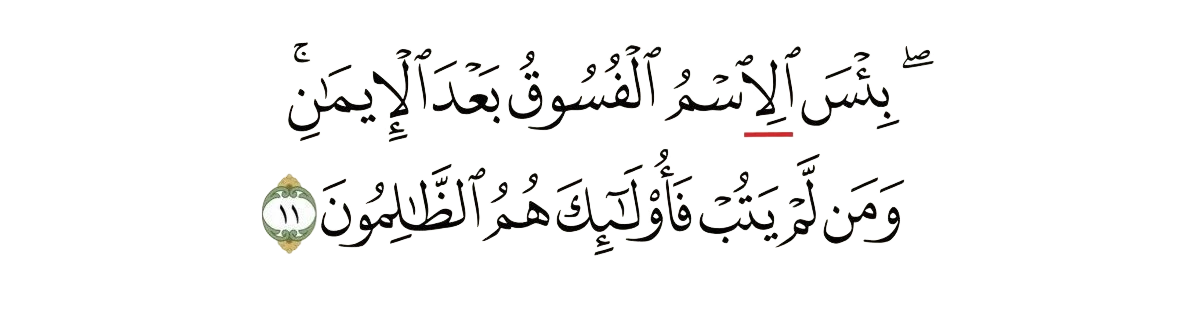 ۖ بِئْسَ ٱلِٱسْمُ ٱلْفُسُوقُ بَعْدَ ٱلْإِيمَـٰنِ ۚ
وَمَن لَّمْ يَتُبْ فَأُو۟لَـٰٓئِكَ هُمُ ٱلظَّـٰلِمُونَ ١١